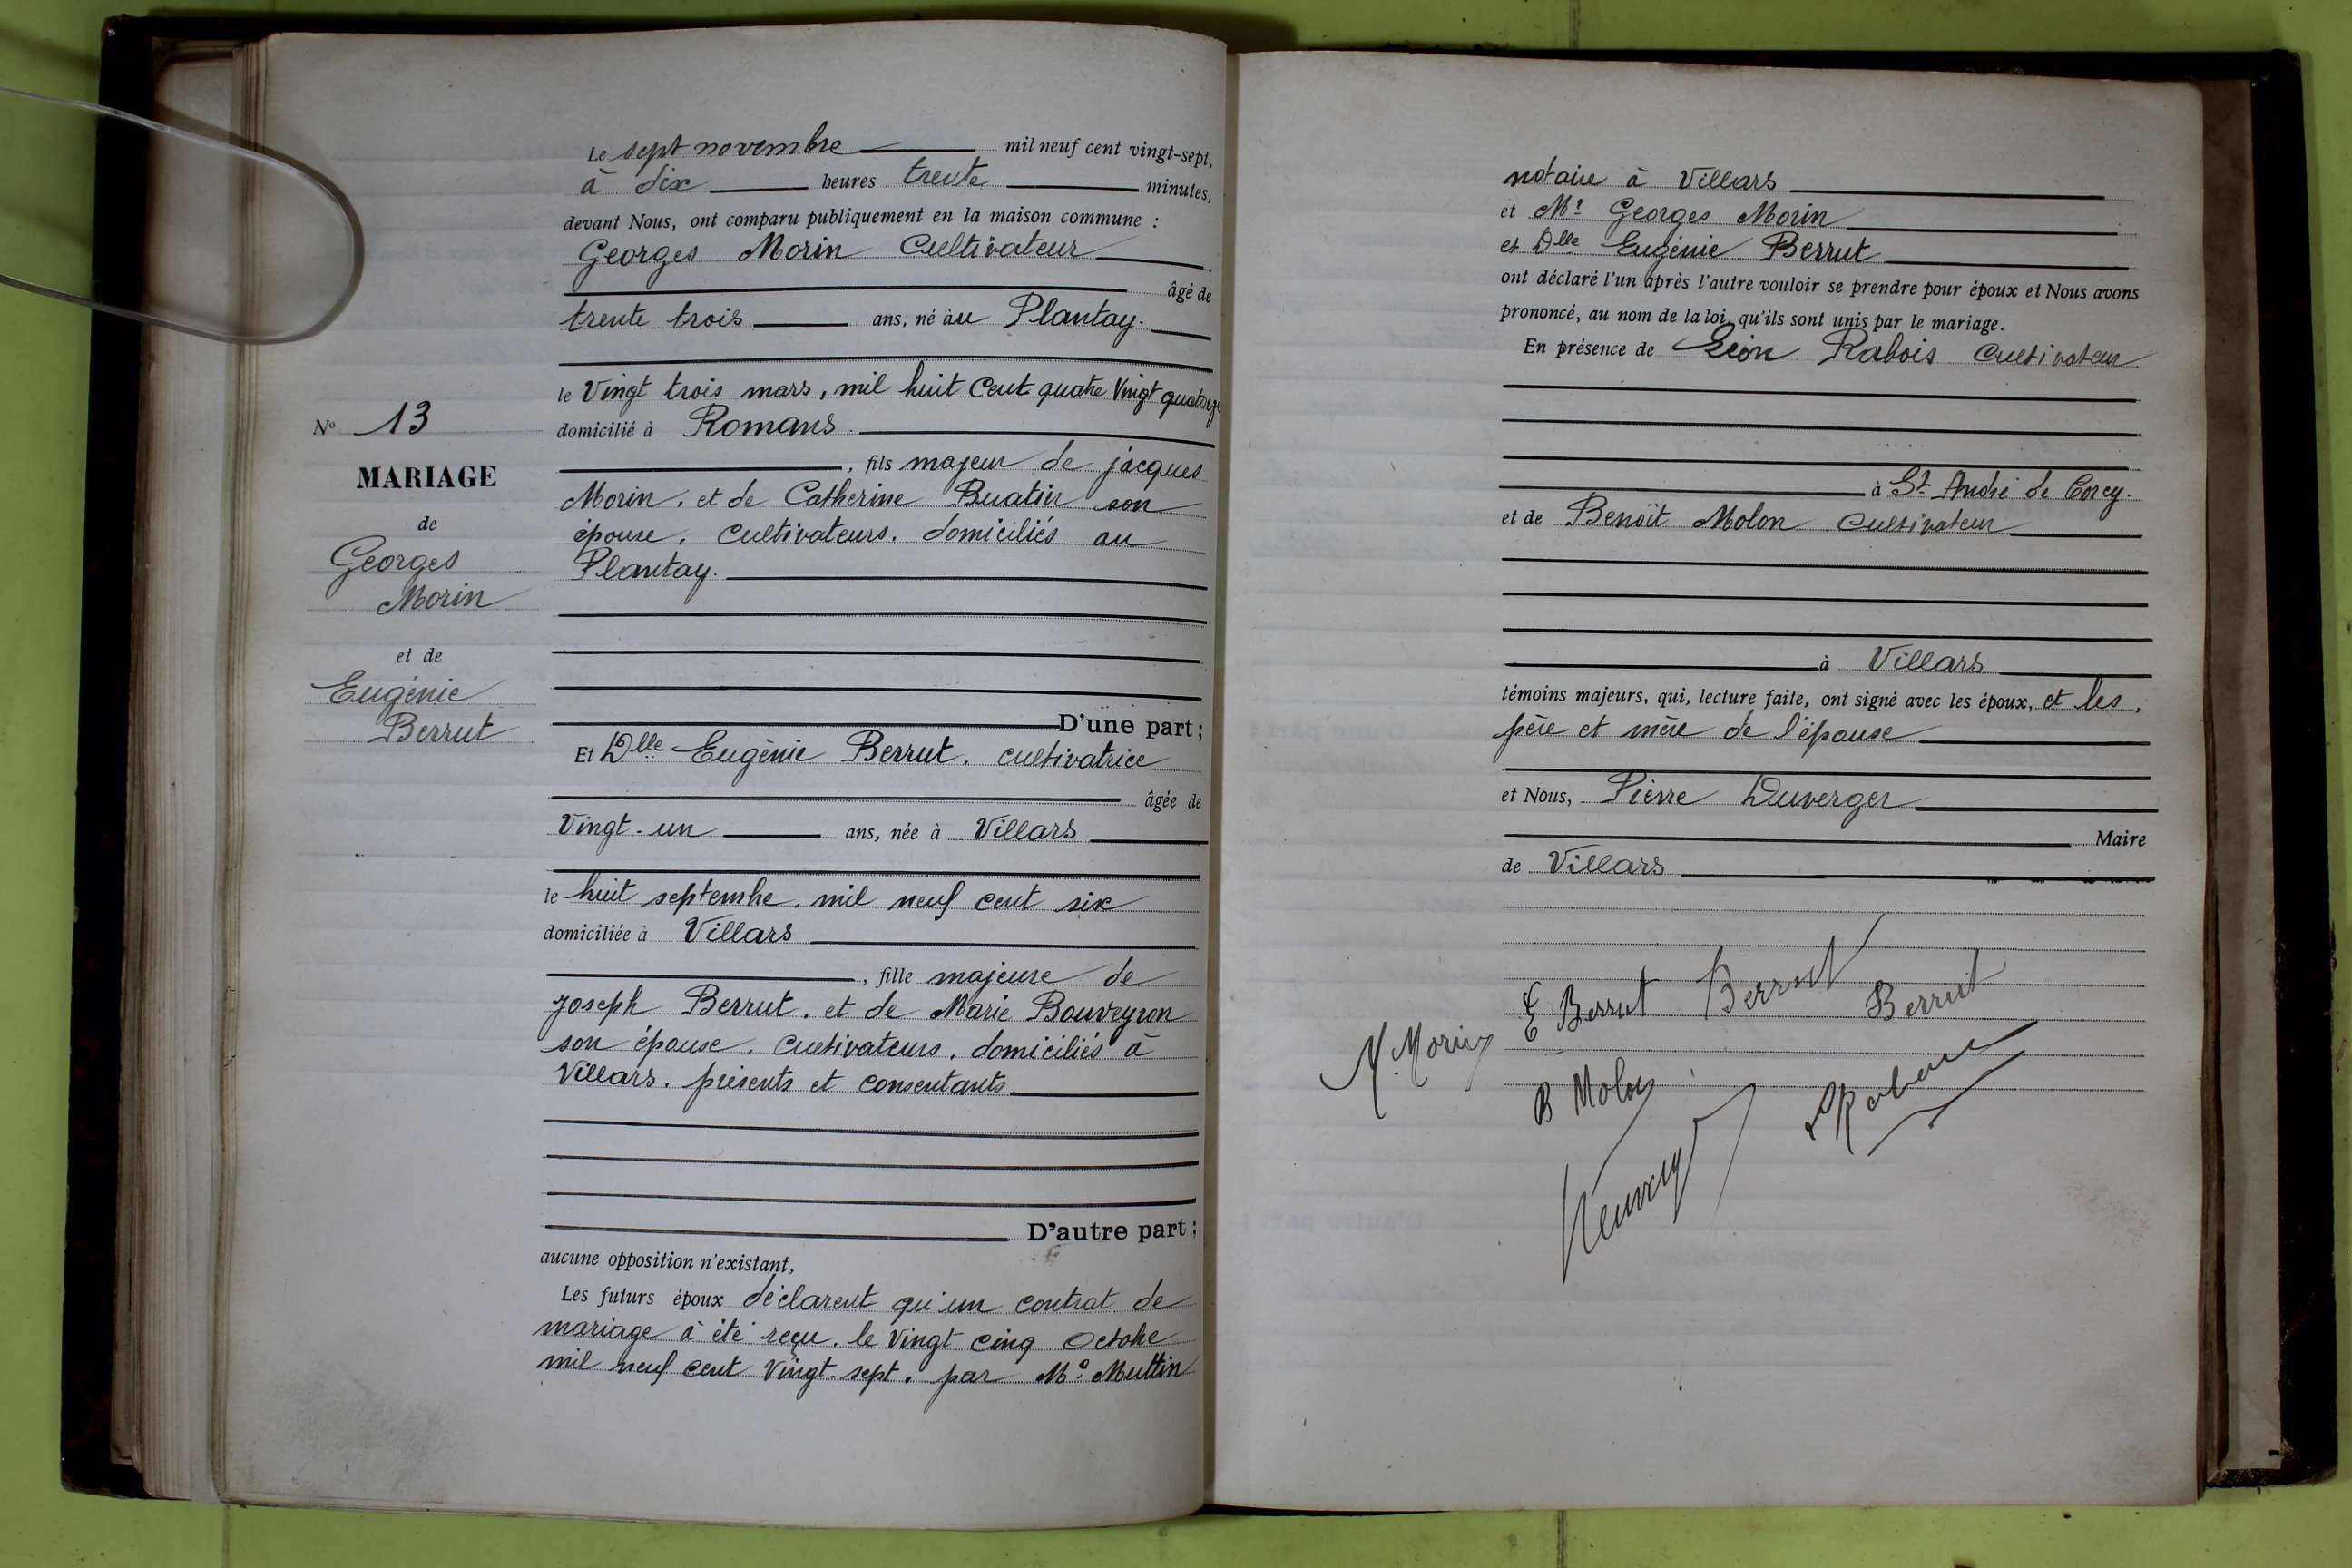 Le sept novembre mil neuf cent vingt-sept,
à dix heures trente minutes,
devant Nous, ont comparu publiquement en la maison commune :
Georges Morin Cultivateur
âgé de
trente trois ans, né àu Plantay.
le Vingt trois mars, mil huit cent quatre Vingt quatorze
domicilié à Romans.
, fils majeur de jacques
Morin. et de Catherine Buatin son
épouse. cultivateurs. domiciliés au
Plantay.
D'une part ;
Nº 13
MARIAGE
de
Georges
Morin
et de
Eugénie
Berrut
Et Dlle Eugénie Berrut. cultivatrice
âgée de
Vingt-un ans, née à Villars
le huit septembre. mil neuf cent six
domiciliée à Villars
, fille majeure de
joseph Berrut. et de Marie Bouveyron
son épouse. cultivateurs. domiciliés à
Villars. présents et consentants.
D'autre part ;
aucune opposition n'existant,
Les futurs époux déclarent qu'un contrat de
mariage à été reçu. le Vingt cinq Octobre
mil neuf cent Vingt-sept. par Me Muttin
notaire à Villars
et Mr Georges Morin
et Dlle Eugénie Berrut
ont déclaré l'un après l'autre vouloir se prendre pour époux et Nous avons
prononcé, au nom de la loi, qu'ils sont unis par le mariage.
En présence de Léon Rabois Cultivateur
à St André de Corcy.
et de Benoît Molon Cultivateur
à Villars
témoins majeurs, qui, lecture faite, ont signé avec les époux, et les,
père et mère de l'épouse
et Nous, Pierre Duverger
Maire
de Villars
E Berrut Berrut
Berrut
Morin
B Molon